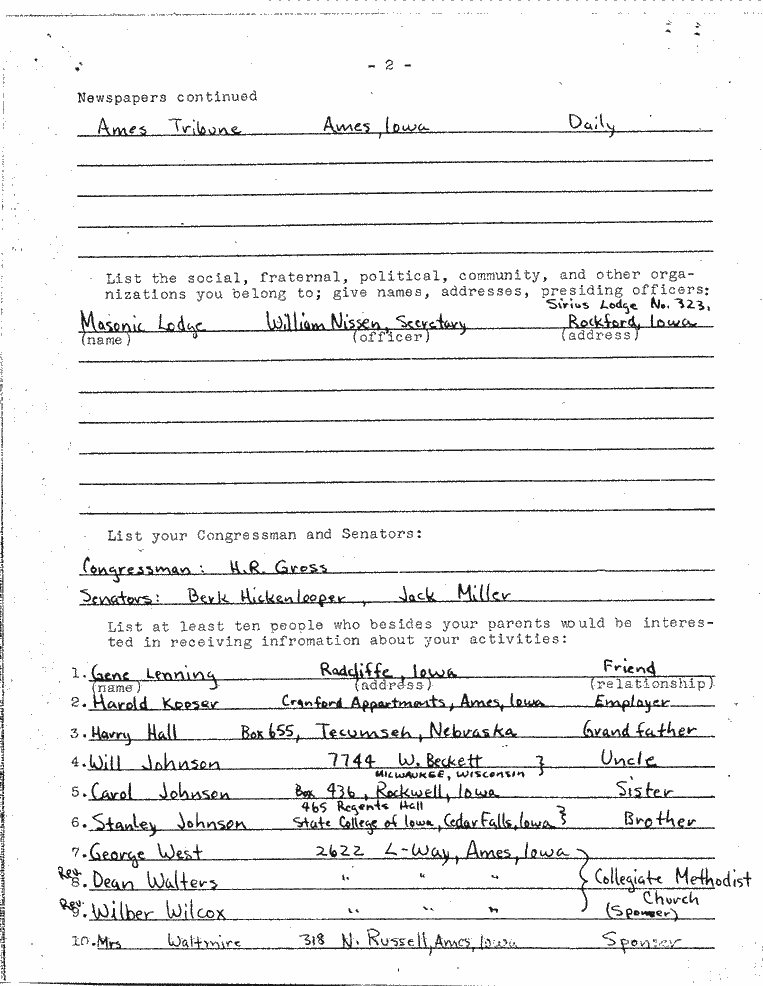 - 2 -
Newspapers continued
Ames Tribune Ames, Iowa Daily
List the social, fraternal, political, community, and other orga-
nizations you belong to; give names, addresses, presiding officers:
Sirius Lodge No. 323,
Masonic Lodge William Nissen, Secretary Rockford, Iowa
(name) (officer) (address)
List your Congressman and Senators:
Congressman: H.R. Gross
Senators: Berk Hickenlooper, Jack Miller
List at least ten people who besides your parents would be interes-
ted in receiving infromation about your activities:
1. Gene Lenning Radcliffe, Iowa Friend
(name) (address) (relationship)
2. Harold Keeser Cranford Appartments, Ames, Iowa Employer
3. Harry Hall Box 655, Tecumseh, Nebraska Grandfather
4. Will Johnson 7744 W. Beckett } Uncle
MILWAUKEE, WISCONSIN
5. Carol Johnson Box 436, Rockwell, Iowa Sister
465 Regents Hall
6. Stanley Johnson State College of Iowa, Cedar Falls, Iowa } Brother
7. George West 2622 L-Way, Ames, Iowa
Rev. 8. Dean Walters " " " } Collegiate Methodist
Church
Rev. 9. Wilber Wilcox " " " (Sponser)
10. Mrs Waltmire 318 N. Russell, Ames, Iowa Sponser